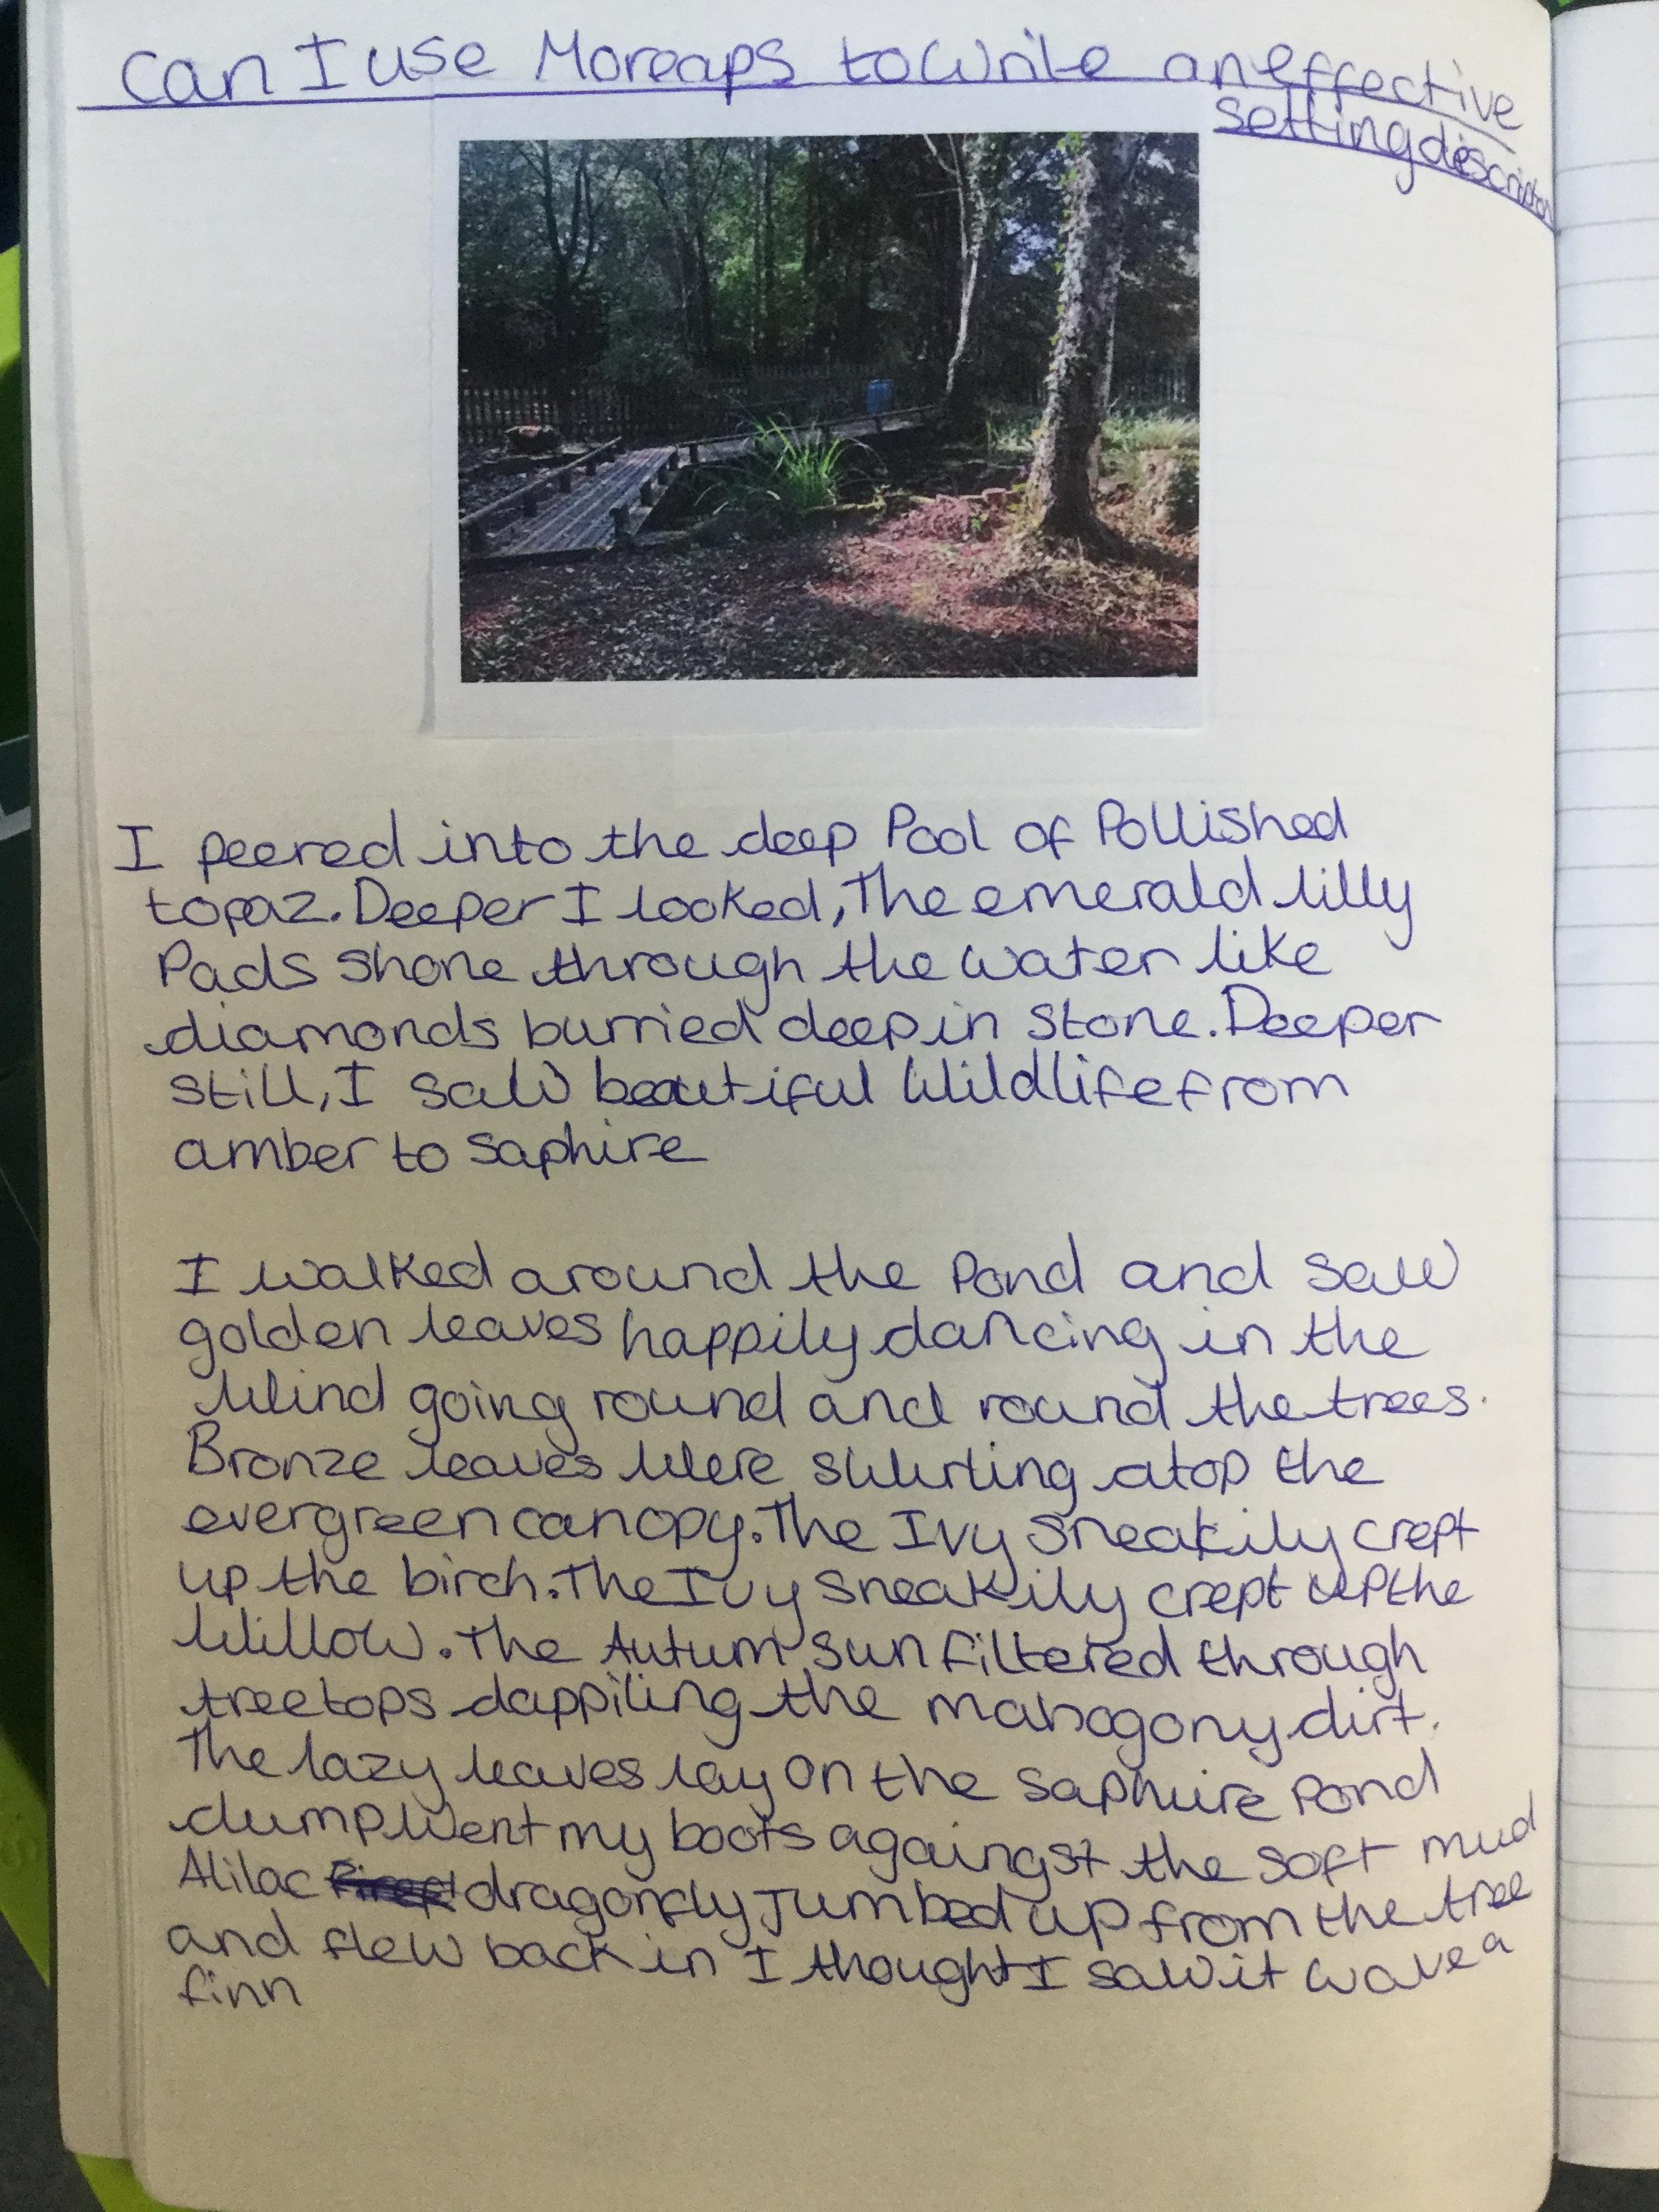 Can I use Moreaps to Write an effective
setting description
I peered into the deep Pool of Pollished
topaz. Deeper I looked, The emerald lilly
Pads shone through the water like
diamonds burried deep in stone. Deeper
still, I saw beautiful Wildlife from
amber to saphire
I walked around the Pond and saw
golden leaves happily dancing in the
Wind going round and round the trees.
Bronze leaves Were swurling atop the
evergreen canopy. The Ivy sneakily crept
up the birch. The Ivy sneakily crept up the
Willow. The Autum sun filtered through
treetops dappiling the mahogony dirt.
The lazy leaves lay on the saphire Pond
dump Went my boots againgst the soft mud
A lilac dragonfly Jumbed up from the tree
and flew back in I thought I saw it wave a
finn